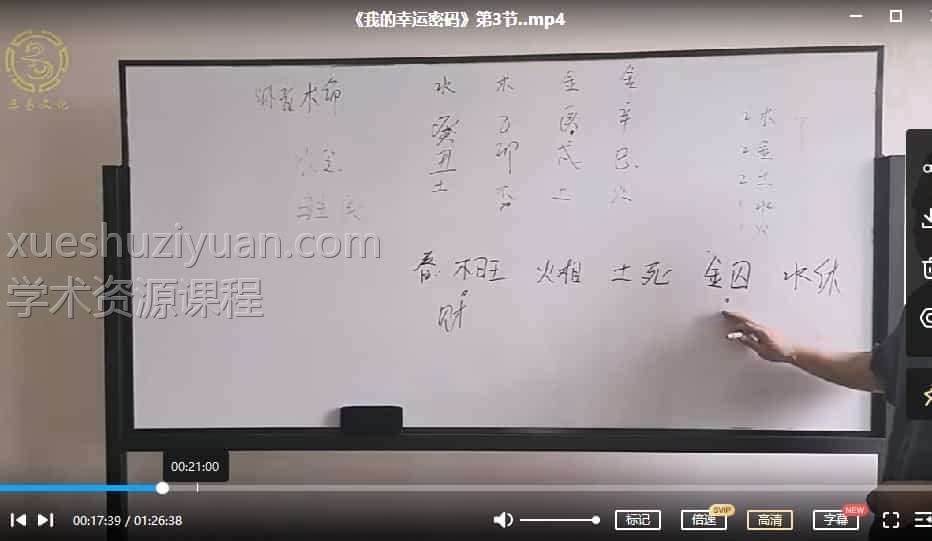 《我的幸运密码》第3节..mp4
三易文化
水 木 金 金
癸 乙 庚 辛
丑 卯 戌 巳
土 木 土 火
2木
2金
2土
1水
1火
xueshuziyuan.com
学术资源课程
春. 木旺 火相 土死 金囚 水休
财
00:21:00
00:17:39 / 01:26:38
标记
倍速
SVIP
高清
字幕
NEW